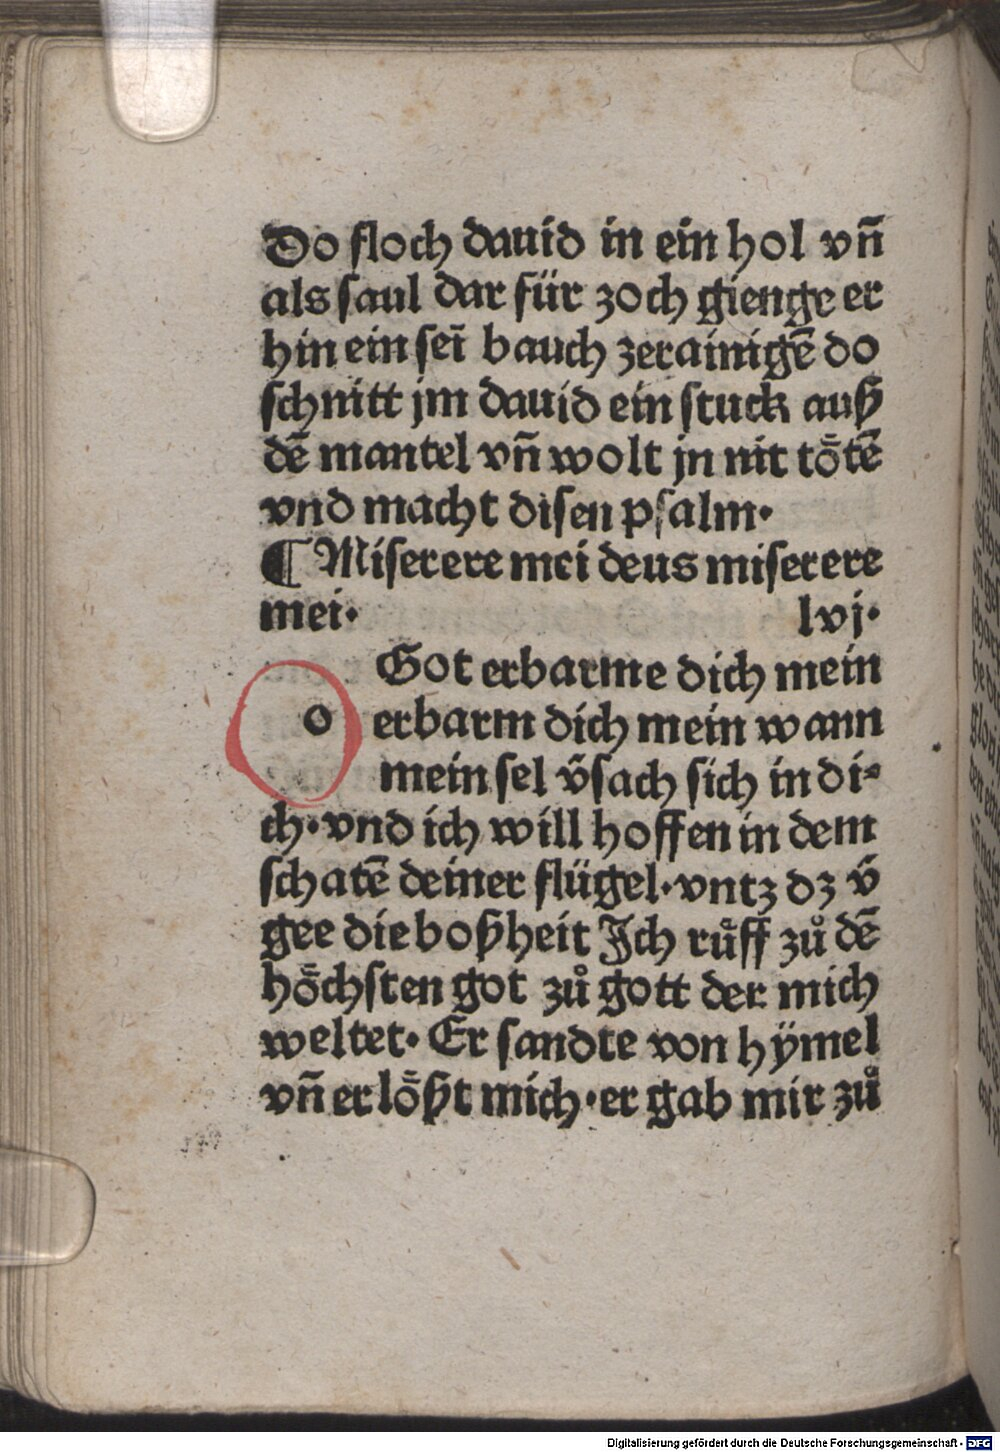 Do floch dauid in ein hol vñ
als saul dar für zoch gienge er
hin ein sei̅ bauch zerainigē do
schnitt jm dauid ein stuck auß
dē mantel vñ wolt jn nit töte̅
vnd macht disen psalm·
¶ Miserere mei deus miserere
mei· lvj·
Got erbarme dich mein
o erbarm dich mein wann
mein sel v̄sach sich in di⸗
ch·vnd ich will hoffen in dem
schatē deiner flügel·vntz dz v̄
gee die boßheit Jch růff zů dē
höchsten got zů gott der mich
weltet· Er sandte von hÿmel
vñ er lößt mich·er gab mir zů
Digitalisierung gefördert durch die Deutsche Forschungsgemeinschaft - DFG